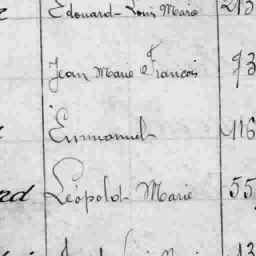 Edouard-Louis Marie 213
Jean Marie François 73
Emmanuel 116
rd Léopold Marie 55